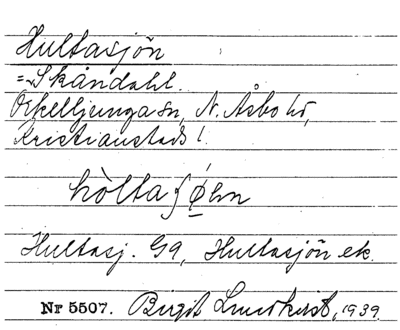 Hultasjön
=Skåndahl.
Örkelljunga sn, N. Åsbo hd,
Kristianstads l.
Hultasj. G9, Hultasjön ek.
Nr 5507. Birgit Lundkvist, 1939